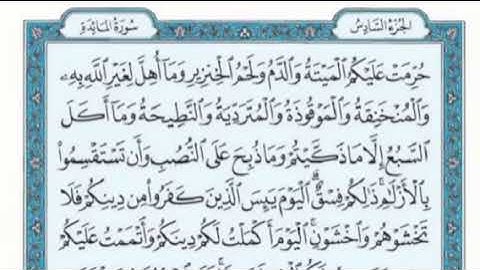 سُورَةُ المَائِدَةِ
الجُزْءُ السَّادِسُ
حُرِّمَتْ عَلَيْكُمُ الْمَيْتَةُ وَالدَّمُ وَلَحْمُ الْخِنزِيرِ وَمَا أُهِلَّ لِغَيْرِ اللَّهِ بِهِۦ
وَالْمُنْخَنِقَةُ وَالْمَوْقُوذَةُ وَالْمُتَرَدِّيَةُ وَالنَّطِيحَةُ وَمَا أَكَلَ
السَّبُعُ إِلَّا مَا ذَكَّيْتُمْ وَمَا ذُبِحَ عَلَى النُّصُبِ وَأَن تَسْتَقْسِمُوا
بِالْأَزْلَٰمِ ذَٰلِكُمْ فِسْقٌ ۗ الْيَوْمَ يَئِسَ الَّذِينَ كَفَرُوا مِن دِينِكُمْ فَلَا
تَخْشَوْهُمْ وَاخْشَوْنِ ۚ الْيَوْمَ أَكْمَلْتُ لَكُمْ دِينَكُمْ وَأَتْمَمْتُ عَلَيْكُمْ